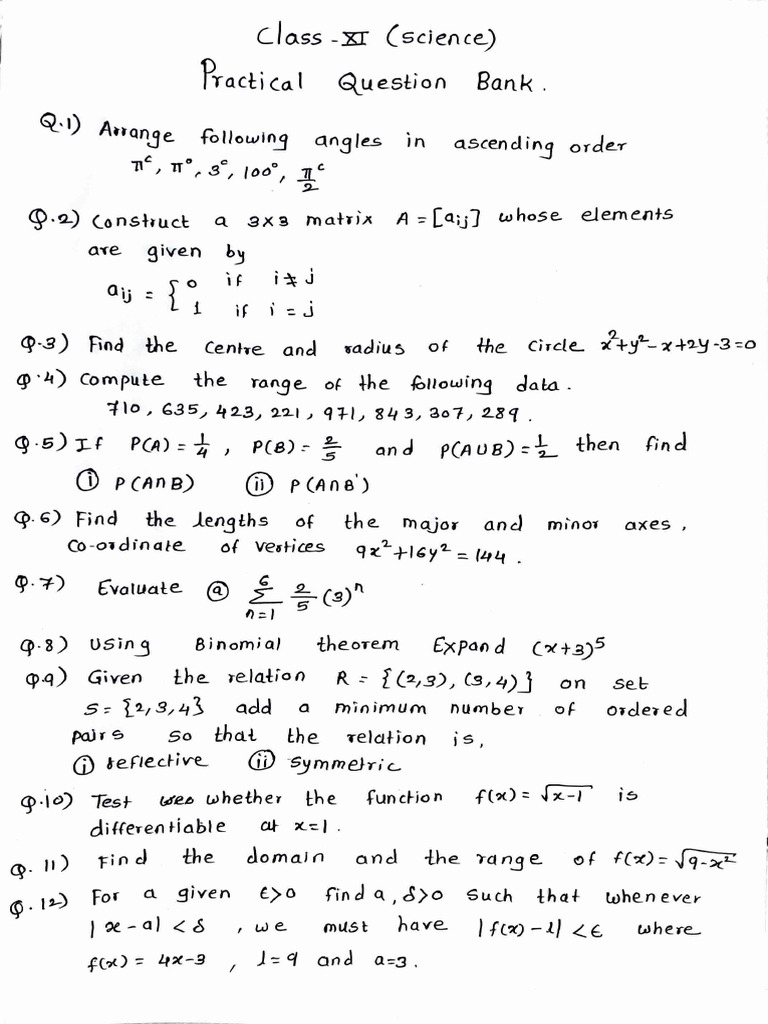 Class - XI (science)
Practical Question Bank.
Q.1) Arrange following angles in ascending order
πᶜ, π°, 3°, 100°, π/2ᶜ
Q.2) Construct a 3x3 matrix A = [aij] whose elements
are given by
aij = { 0 if i ≠ j
1 if i = j
Q.3) Find the centre and radius of the circle x²+y²-x+2y-3=0
Q.4) Compute the range of the following data.
710, 635, 423, 221, 971, 843, 307, 289.
Q.5) If P(A) = 1/4, P(B) = 2/5 and P(A∪B) = 1/2 then find
(i) P(A∩B) (ii) P(A∩B')
Q.6) Find the lengths of the major and minor axes,
co-ordinate of vertices 9x²+16y² = 144.
Q.7) Evaluate (a) 6 Σ n=1 2/5 (3)ⁿ
Q.8) Using Binomial theorem Expand (x+3)⁵
Q.9) Given the relation R = {(2,3), (3,4)} on set
S = {2,3,4} add a minimum number of ordered
pairs so that the relation is,
(i) reflective (ii) symmetric
Q.10) Test whether the function f(x) = √x-1 is
differentiable at x=1.
Q.11) Find the domain and the range of f(x) = √9-x²
Q.12) For a given ϵ>0 find a, δ>0 such that whenever
|x-a| < δ, we must have |f(x)-l| < ϵ where
f(x) = 4x-3, l=9 and a=3.